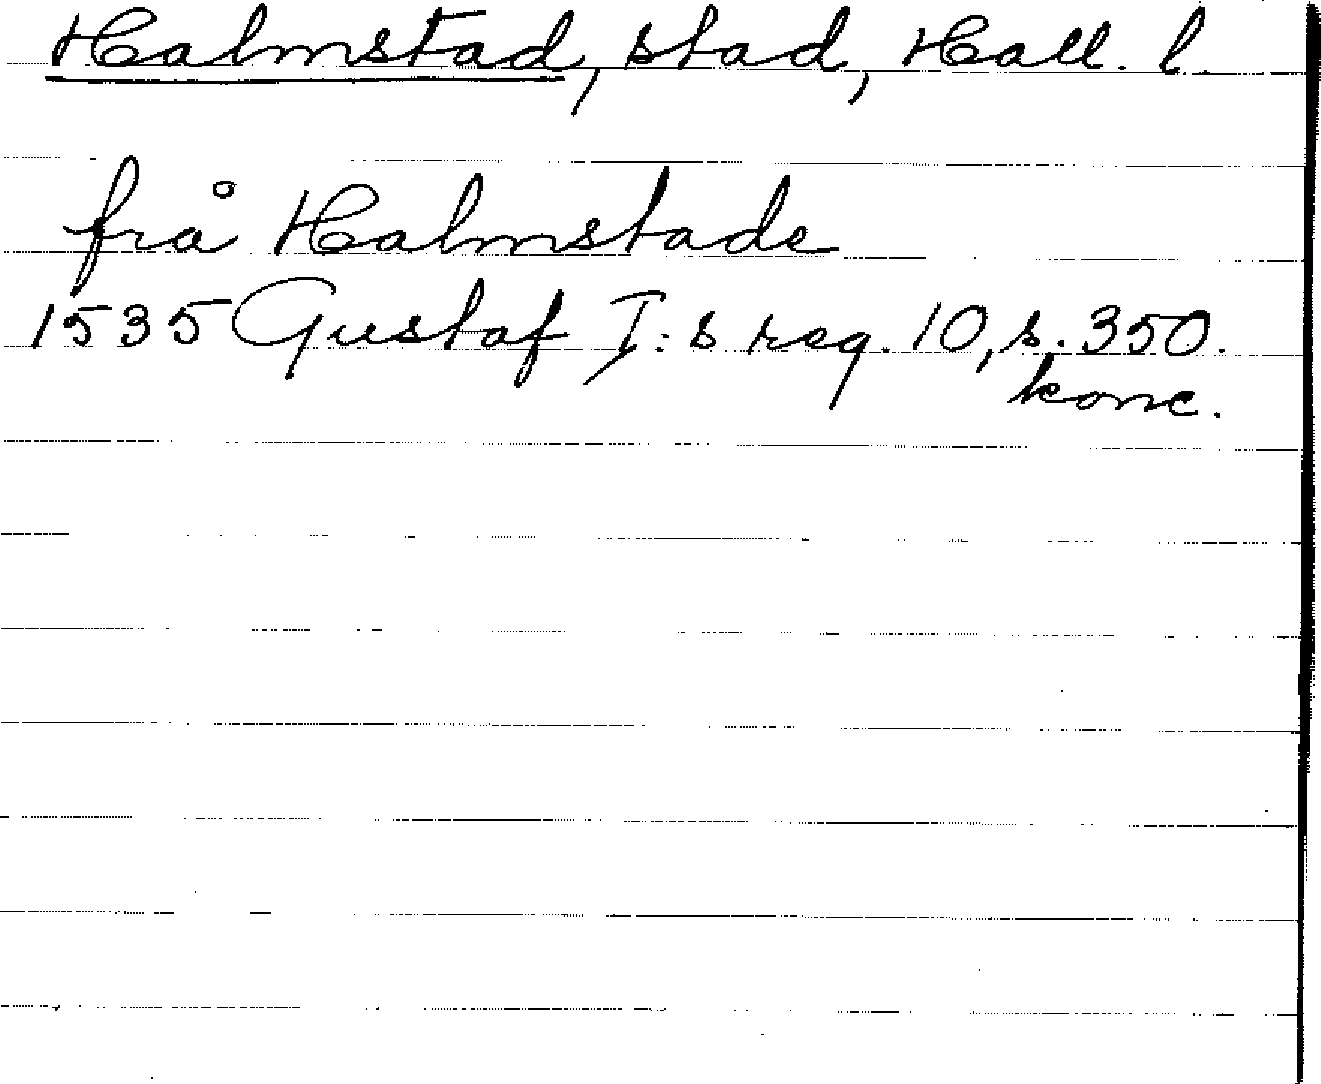 Halmstad, stad, Hall. l.
frå Halmstade
1535 Gustaf I:s reg. 10, s. 350.
konc.